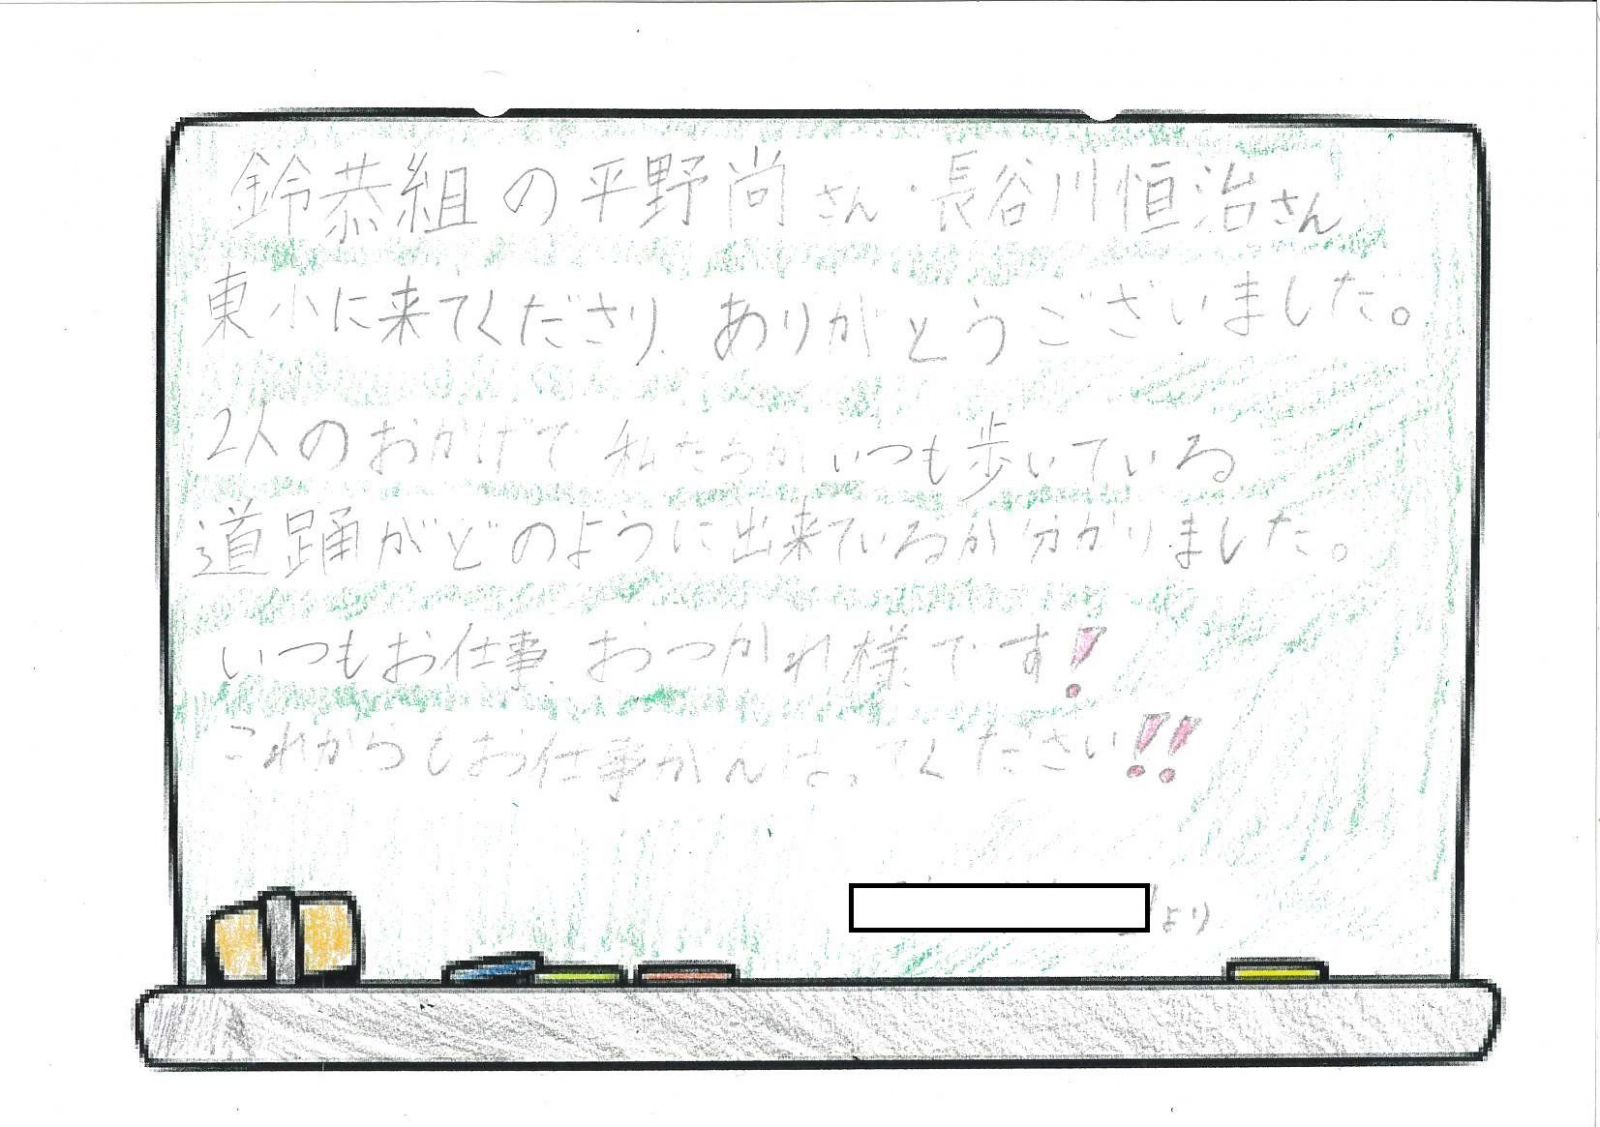 鈴恭組の平野尚さん・長谷川恒治さん
東小に来てくださり、ありがとうございました。
2人のおかげで私たちがいつも歩いている
道踊がどのように出来ているが分かりました。
いつもお仕事、おつかれ様です!
これからもお仕事がんばってください!!
より